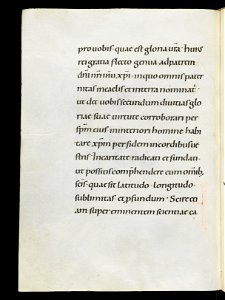 pro vobis · quae est gloria ur̄a · huius
rei gratia flecto genua ad patrem
dn̄i nr̄i ihu xp̄i · in quo omnis pater
nitas in caelis et in terra nominat᷑
ut det vobis secundum divitias glo
riae suae virtute corroborari per
sp̄m eius in interiori homine habi
tare xp̄m per fidem in cordibus ue
stris · In caritate radicati et fundati ·
ut possitis comprehendere cum omib;
sc̄is · quae sit latitudo · longitudo ·
sublimitas et pfundum · Scire eti
am super eminentem scientiae ca